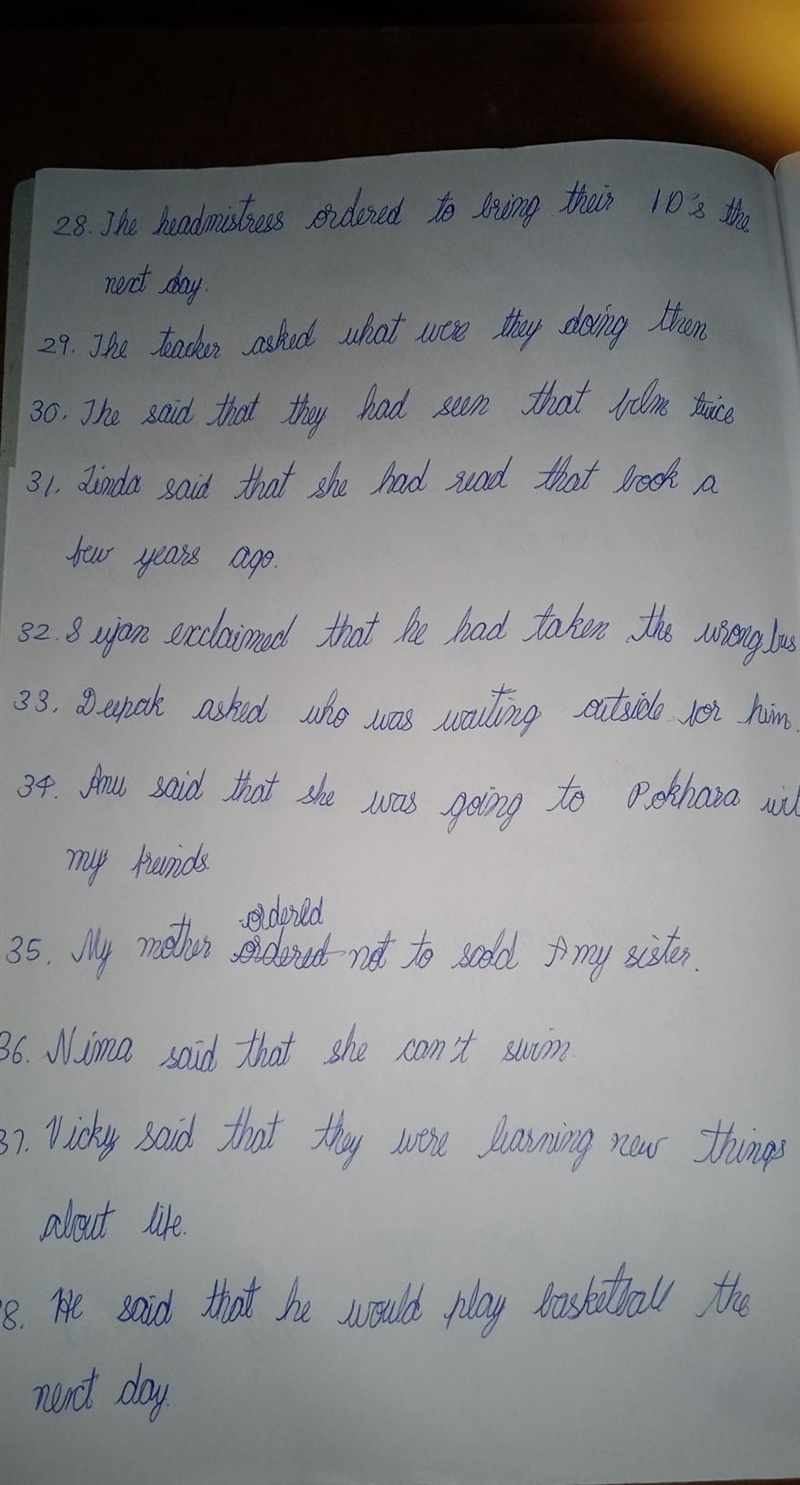 28. The headmistress ordered to bring their ID's the
next day.
29. The teacher asked what were they doing then
30. The said that they had seen that film twice
31. Linda said that she had read that book a
few years ago.
32. Sujan exclaimed that he had taken the wrong bus.
33. Deepak asked who was waiting outside for him.
34. Anu said that she was going to Pokhara wit
my freinds.
ordered
35. My mother ordered not to scold my sister.
36. Nima said that she can't swim.
37. Vicky said that they were learning new things
about life.
8. He said that he would play basketball the
next day.